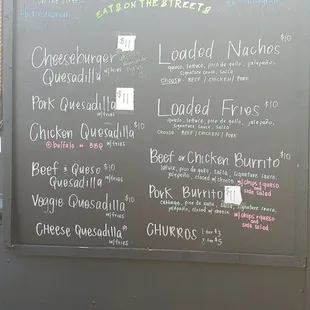 EATS ON THE STREETS
Cheeseburger $11
Quesadilla w/fries
Pork Quesadilla $11
w/fries
Chicken Quesadilla $10
w/fries
@ buffalo or BBQ
Beef & Queso $10
Quesadilla w/fries
Veggie Quesadilla $10
w/fries
Cheese Quesadilla
w/fries
Loaded Nachos $10
queso, lettuce, pico de gallo, jalapeño,
signature sauce, salsa
CHOOSE: BEEF / CHICKEN / PORK
Loaded Fries $10
queso, lettuce, pico de gallo, jalapeño,
signature sauce, salsa
CHOOSE: BEEF / CHICKEN / PORK
Beef or Chicken Burrito $10
lettuce, pico de gallo, salsa, signature sauce,
jalapeño, closed w/ cheese w/ chips & queso
and side salad
Pork Burrito $11
cabbage, pico de gallo, salsa, signature sauce,
jalapeño, closed w/ cheese w/ chips & queso
and side salad
CHURROS 1 for $3
2 for $5